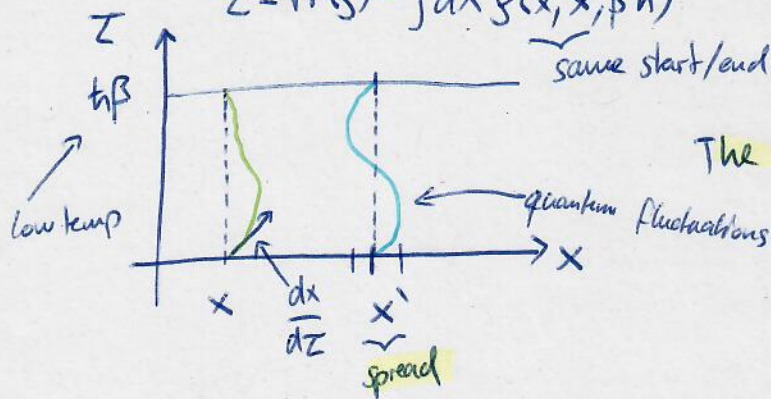 Z = Tr(ρ) = ∫dx ρ(x, x, βħ)
same start/end
τ
ħβ
The
low temp
quantum fluctuations
x
x
dx
dτ
x'
spread